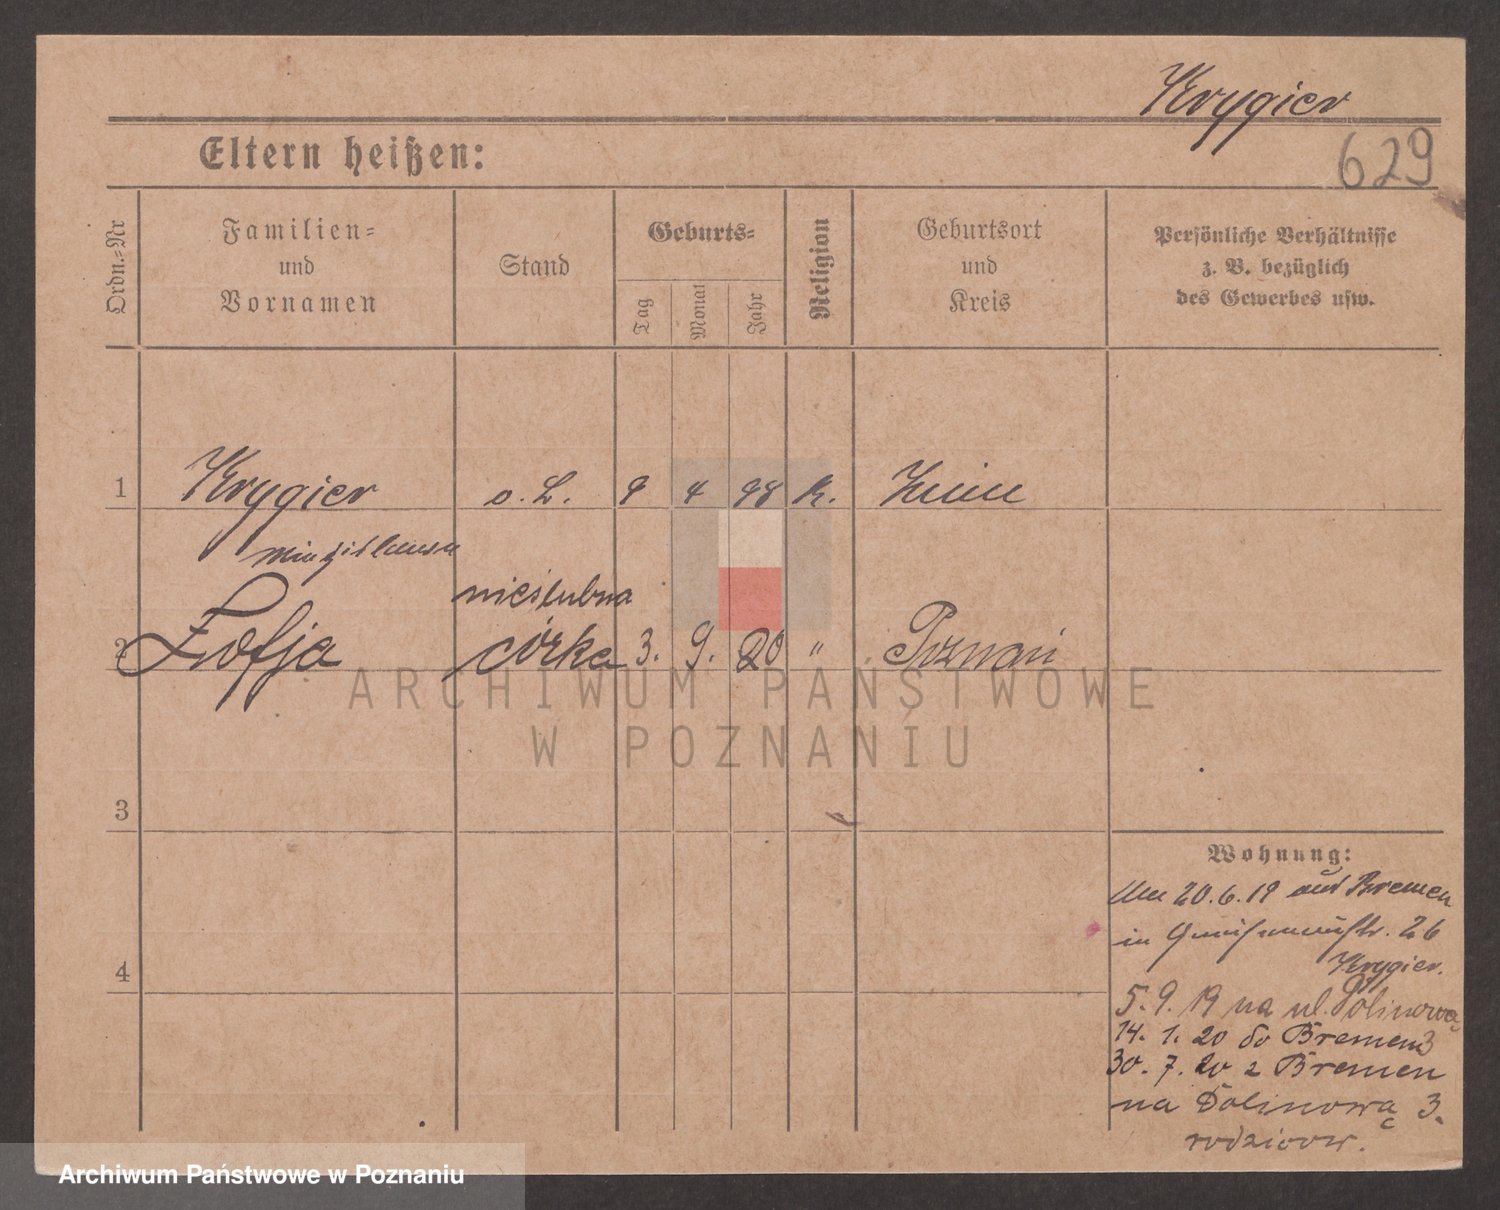 Krygier
Eltern heißen:
629
Ordn.-Nr
Familien-
und
Vornamen
Stand
Geburts-
Tag
Monat
Jahr
Religion
Geburtsort
und
Kreis
Persönliche Verhältnisse
z. B. bezüglich
des Gewerbes usw.
1 Krygier o. L. 9 4 98 K. Znin
nieślubna
2 Zofja córka 3. 9. 20 " Poznań
ARCHIWUM PAŃSTWOWE
W POZNANIU
3
4
Wohnung:
Am 20.6.19 aus Bremen
in Gneisenaustr. 26
Krygier.
5. 9. 19 na ul. Dolinową
14. 1. 20 do Bremen 3
30. 7. 20 z Bremen
na Dolinową 3.
rodziców.
Archiwum Państwowe w Poznaniu